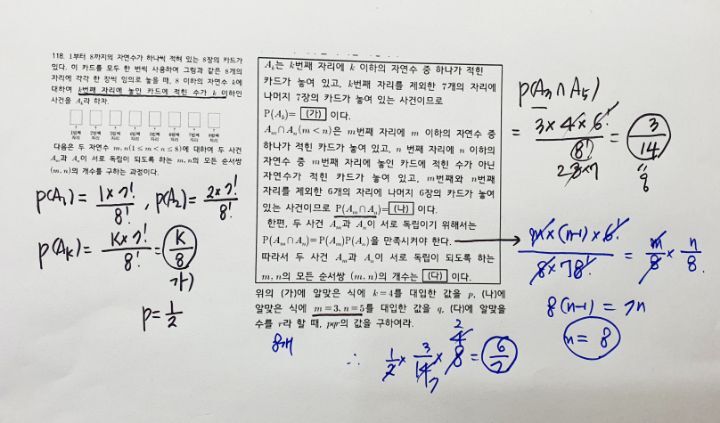 118. 1부터 8까지의 자연수가 하나씩 적혀 있는 8장의 카드가
있다. 이 카드를 모두 한 번씩 사용하여 그림과 같은 8개의
자리에 각각 한 장씩 임의로 놓을 때, 8 이하의 자연수 k에
대하여 k번째 자리에 놓인 카드에 적힌 수가 k 이하인
사건을 Aₖ라 하자.
1번째 자리 2번째 자리 3번째 자리 4번째 자리 5번째 자리 6번째 자리 7번째 자리 8번째 자리
다음은 두 자연수 m, n(1≤m<n≤8)에 대하여 두 사건
Aₘ과 Aₙ이 서로 독립이 되도록 하는 m, n의 모든 순서쌍
(m, n)의 개수를 구하는 과정이다.
P(A₁) = 1×7!/8! , P(A₂) = 2×7!/8!
P(Aₖ) = K×7!/8! = K/8
가)
P = 1/2
Aₖ는 k번째 자리에 k 이하의 자연수 중 하나가 적힌
카드가 놓여 있고, k번째 자리를 제외한 7개의 자리에
나머지 7장의 카드가 놓여 있는 사건이므로
P(Aₖ)= (가) 이다.
Aₘ∩Aₙ(m<n)은 m번째 자리에 m 이하의 자연수 중
하나가 적힌 카드가 놓여 있고, n번째 자리에 n 이하의
자연수 중 m번째 자리에 놓인 카드에 적힌 수가 아닌
자연수가 적힌 카드가 놓여 있고, m번째와 n번째
자리를 제외한 6개의 자리에 나머지 6장의 카드가 놓여
있는 사건이므로 P(Aₘ∩Aₙ)= (나) 이다.
한편, 두 사건 Aₘ과 Aₙ이 서로 독립이기 위해서는
P(Aₘ∩Aₙ)=P(Aₘ)P(Aₙ)을 만족시켜야 한다.
따라서 두 사건 Aₘ과 Aₙ이 서로 독립이 되도록 하는
m, n의 모든 순서쌍 (m, n)의 개수는 (다) 이다.
위의 (가)에 알맞은 식에 k=4를 대입한 값을 p, (나)에
알맞은 식에 m=3, n=5를 대입한 값을 q, (다)에 알맞을
수를 r라 할 때, pqr의 값을 구하여라.
8개
∴ 1/2 × 3/14 × 8 = 6/7
2 4
7
P(A₃∩A₅)
= 3×4×6!/8! = 3/14
2 8×7
" q
m×(n-1)×6!/8×7 8! = m/8 × n/8
8(n-1) = 7n
n = 8